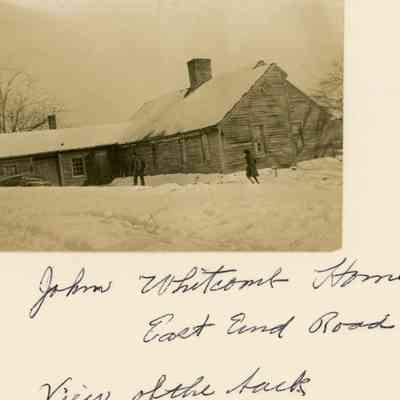 John Whitcomb Home
East End Road
View of the back